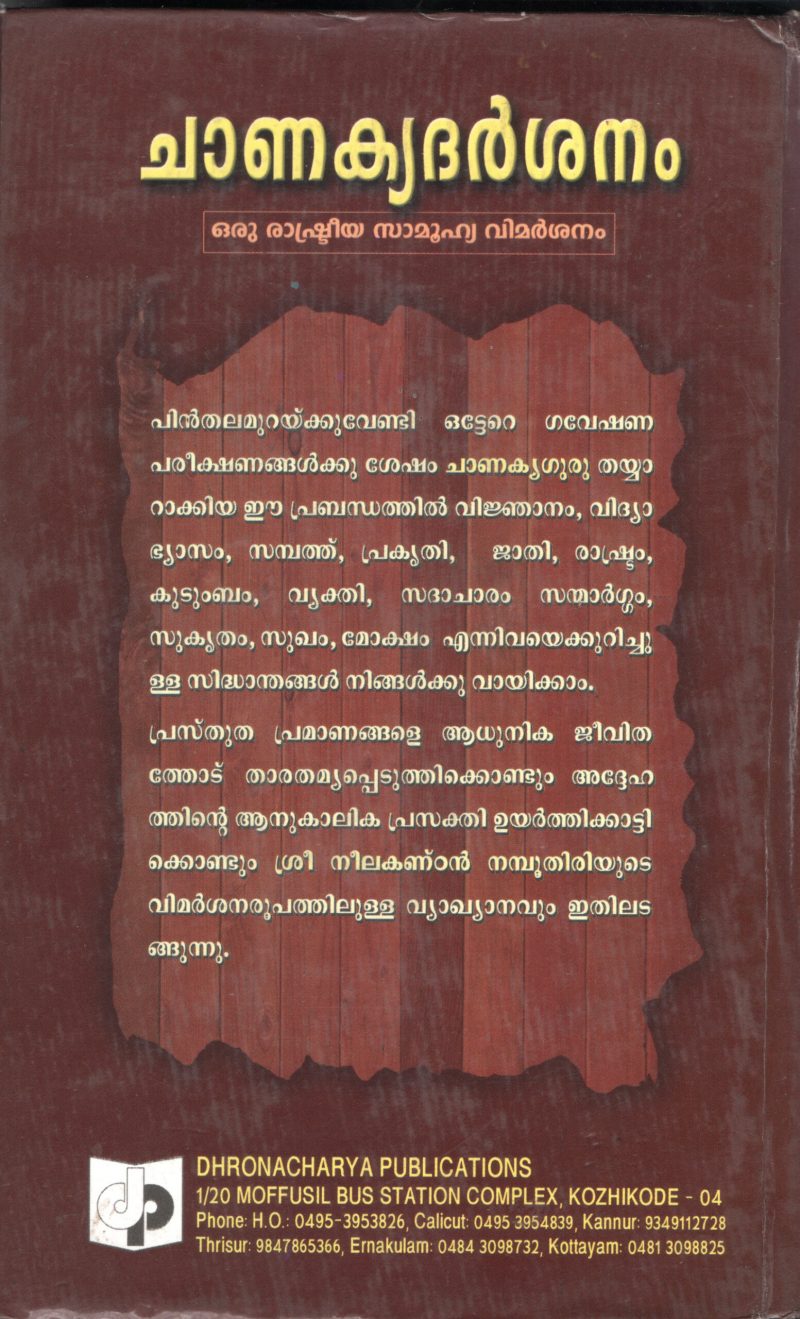 ചാണക്യദർശനം
ഒരു രാഷ്ട്രീയ സാമൂഹ്യ വിമർശനം
പിൻതലമുറയ്ക്കുവേണ്ടി ഒട്ടേറെ ഗവേഷണ
പരീക്ഷണങ്ങൾക്കു ശേഷം ചാണക്യഗുരു തയ്യാ
റാക്കിയ ഈ പ്രബന്ധത്തിൽ വിജ്ഞാനം, വിദ്യാ
ഭ്യാസം, സമ്പത്ത്, പ്രകൃതി, ജാതി, രാഷ്ട്രം,
കുടുംബം, വ്യക്തി, സദാചാരം സന്മാർഗ്ഗം,
സുകൃതം, സുഖം, മോക്ഷം എന്നിവയെക്കുറിച്ചു
ള്ള സിദ്ധാന്തങ്ങൾ നിങ്ങൾക്കു വായിക്കാം.
പ്രസ്തുത പ്രമാണങ്ങളെ ആധുനിക ജീവിത
ത്തോട് താരതമ്യപ്പെടുത്തിക്കൊണ്ടും അദ്ദേഹ
ത്തിന്റെ ആനുകാലിക പ്രസക്തി ഉയർത്തിക്കാട്ടി
ക്കൊണ്ടും ശ്രീ നീലകണ്ഠൻ നമ്പൂതിരിയുടെ
വിമർശനരൂപത്തിലുള്ള വ്യാഖ്യാനവും ഇതിലട
ങ്ങുന്നു.
dp
DHRONACHARYA PUBLICATIONS
1/20 MOFFUSIL BUS STATION COMPLEX, KOZHIKODE - 04
Phone: H.O.: 0495-3953826, Calicut: 0495 3954839, Kannur: 9349112728
Thrisur: 9847865366, Ernakulam: 0484 3098732, Kottayam: 0481 3098825